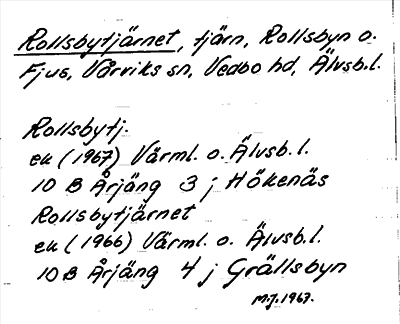 Rollsbytjärnet, tjärn, Rollsbyn o.
Fjus, Vårviks sn, Vedbo hd, Älvsb.l.
Rollsbytj.
ek (1967) Värml. o. Älvsb.l.
10 B Årjäng 3 j Hökenäs
Rollsbytjärnet
ek (1966) Värml. o. Älvsb.l.
10 B Årjäng 4 j Grällsbyn
M.J. 1967.